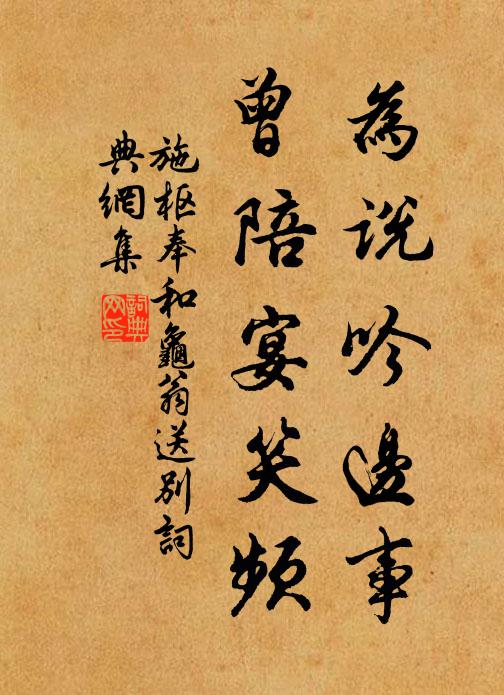 為說吟邊事
曾陪宴笑頻
施枢奉和龜翁送別詞
典網集
詞典網印